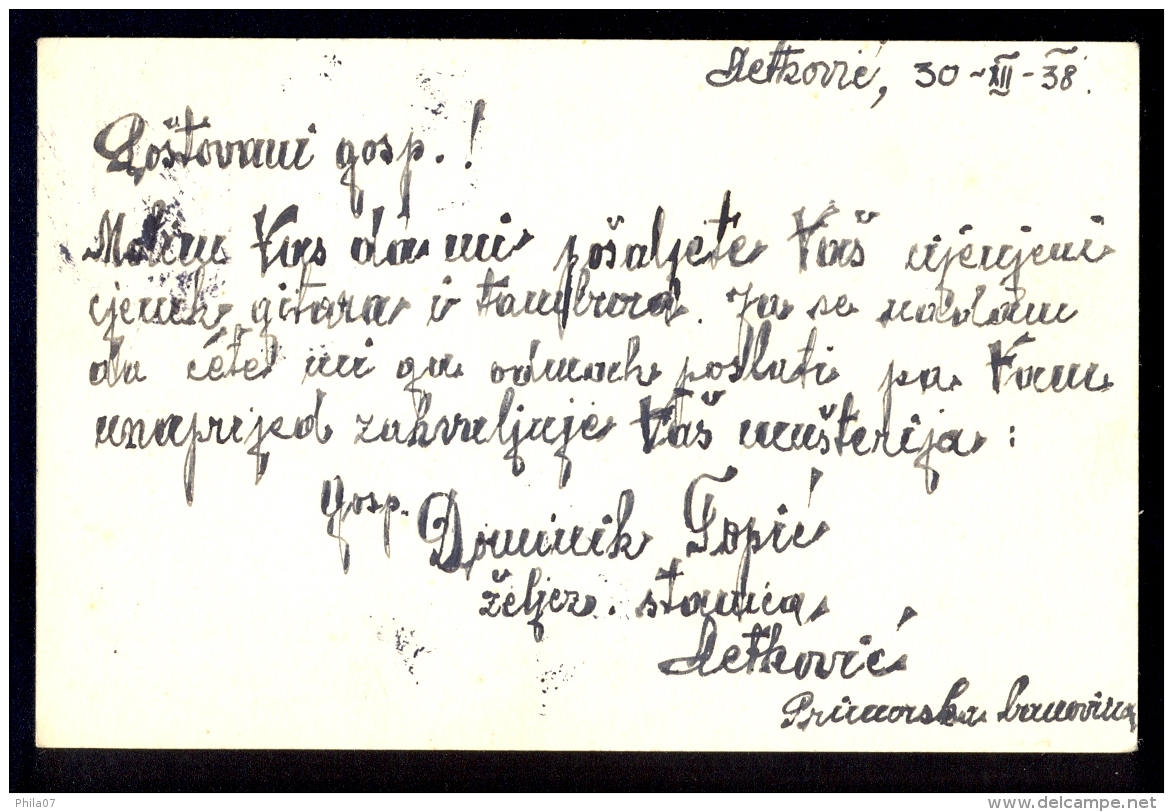 Letković, 30-XII-38.
Poštovani gosp.!
Molim Vas da mi pošaljete Vaš cjenjeni
cjenik gitara i tambura. Ja se nadam
da ćete mi ga odmah poslati pa Vam
unaprijed zahvaljuje Vaš mušterija:
gosp. Dominik Topić
željez. stanica
Letković
Primorska banovina
Phila07
www.delcampe.net